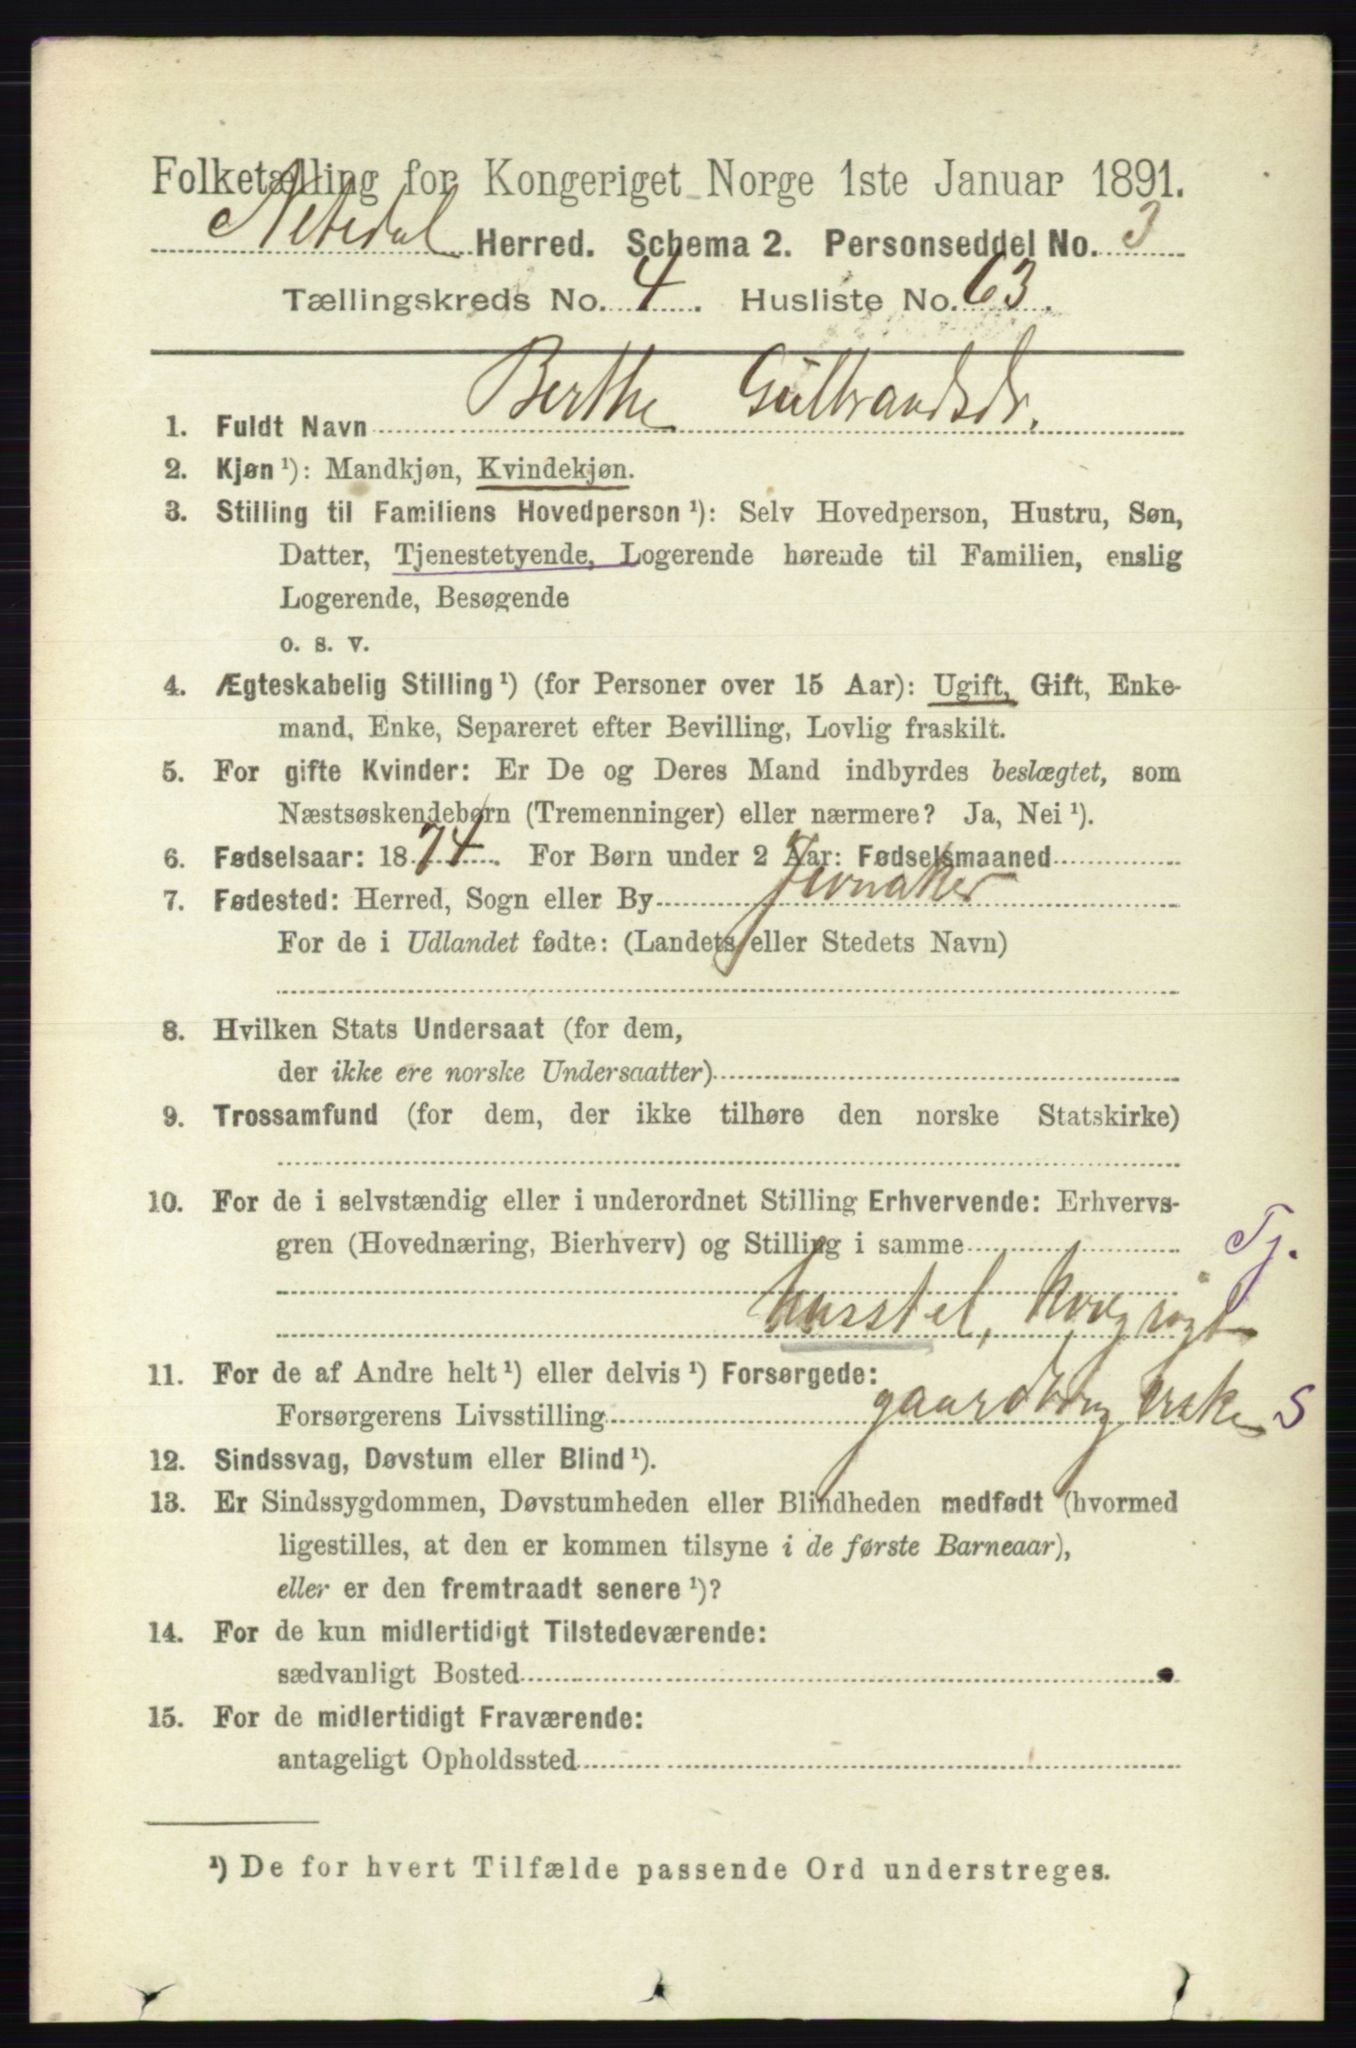 Folketælling for Kongeriget Norge 1ste Januar 1891.
Nitedal Herred. Schema 2. Personseddel No. 3
Tællingskreds No. 4. Husliste No. 63.
1. Fuldt Navn Berthe Gulbrandsdr.
2. Kjøn ¹): Mandkjøn, Kvindekjøn.
3. Stilling til Familiens Hovedperson ¹): Selv Hovedperson, Hustru, Søn,
Datter, Tjenestetyende, Logerende hørende til Familien, enslig
Logerende, Besøgende
o. s. v.
4. Ægteskabelig Stilling ¹) (for Personer over 15 Aar): Ugift, Gift, Enke-
mand, Enke, Separeret efter Bevilling, Lovlig fraskilt.
5. For gifte Kvinder: Er De og Deres Mand indbyrdes beslægtet, som
Næstsøskendebørn (Tremenninger) eller nærmere? Ja, Nei ¹).
6. Fødselsaar: 1874. For Børn under 2 Aar: Fødselsmaaned
7. Fødested: Herred, Sogn eller By Jevnaker
For de i Udlandet fødte: (Landets eller Stedets Navn)
8. Hvilken Stats Undersaat (for dem,
der ikke ere norske Undersaatter)
9. Trossamfund (for dem, der ikke tilhøre den norske Statskirke)
10. For de i selvstændig eller i underordnet Stilling Erhvervende: Erhvervs-
gren (Hovednæring, Bierhverv) og Stilling i samme
Tj.
husstel,
11. For de af Andre helt ¹) eller delvis ¹) Forsørgede:
Forsørgerens Livsstilling S
12. Sindssvag, Døvstum eller Blind ¹).
13. Er Sindssygdommen, Døvstumheden eller Blindheden medfødt (hvormed
ligestilles, at den er kommen tilsyne i de første Barneaar),
eller er den fremtraadt senere ¹)?
14. For de kun midlertidigt Tilstedeværende:
sædvanligt Bosted
15. For de midlertidigt Fraværende:
antageligt Opholdssted
¹) De for hvert Tilfælde passende Ord understreges.